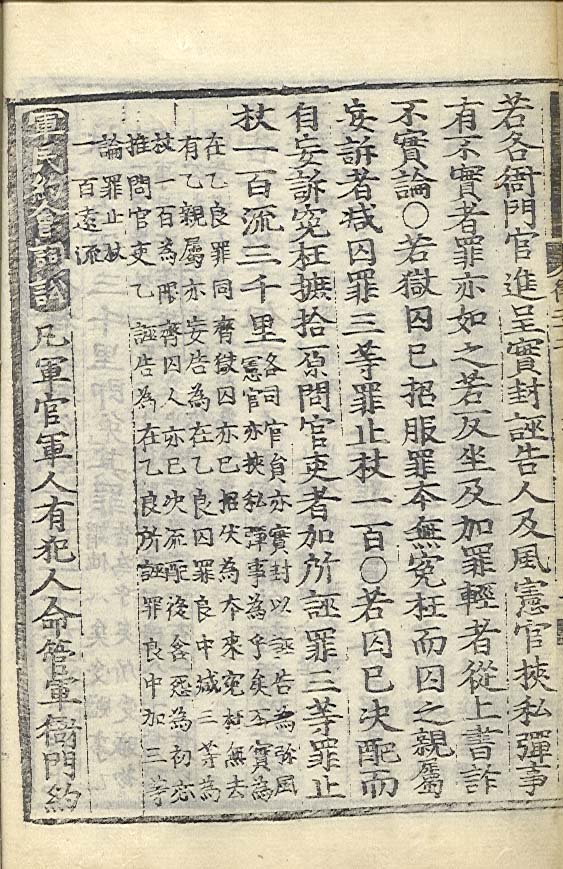 若各衙門官進呈實封誣告人及風憲官挾私彈事
有不實者罪亦如之若反坐及加罪輕者從上書詐
不實論○若獄囚已招服罪本無冤枉而囚之親屬
妄訴者减囚罪三等罪止杖一百○若囚已決配而
自妄訴冤枉摭拾原問官吏者加所誣罪三等罪止
杖一百流三千里
各司官員亦實封以誣告為旀風
憲官亦挾私彈事為乎矣不實為
在乙良罪同齊獄囚亦已招伏為本來冤枉無去
有乙親屬亦妄告為在乙良囚罪良中减三等為
杖一百為限齊囚人亦已決流配後含怨為初亦
推問官吏乙誣告為在乙良所誣罪良中加三等
論罪止杖
一百遠流
軍民約會詞訟 凡軍官軍人有犯人命管軍衙門約